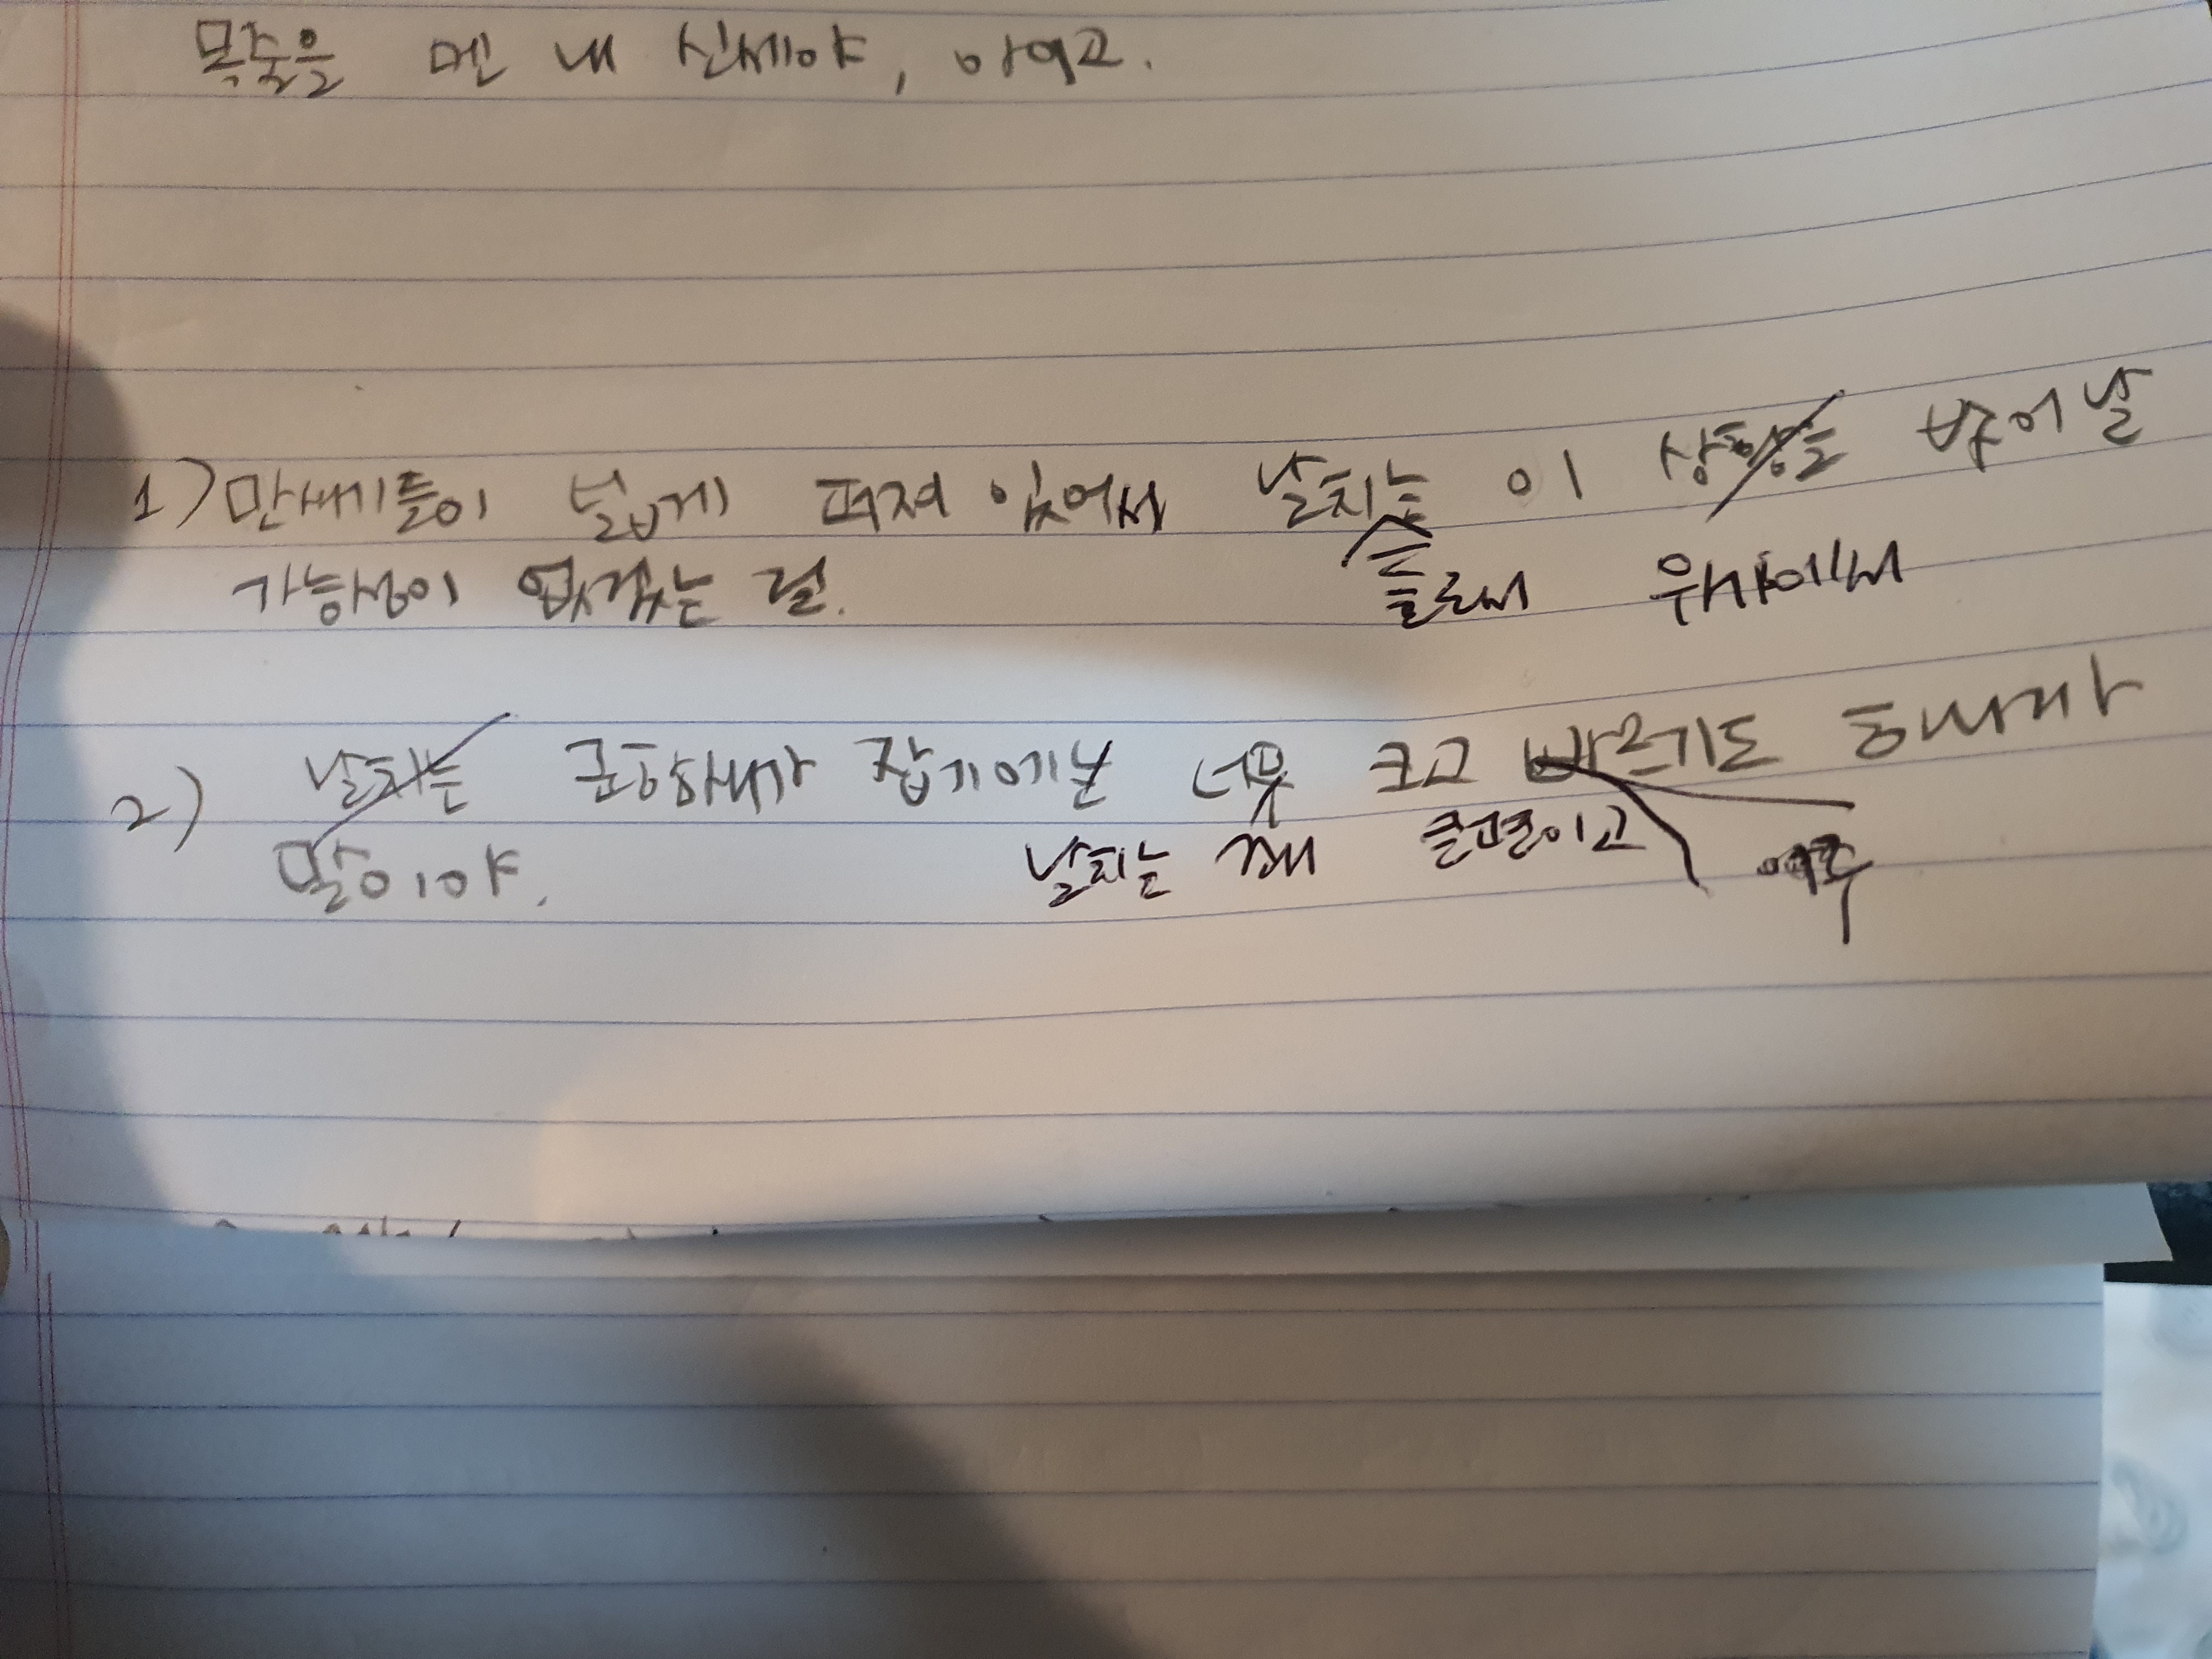 목줄을 멘 내 신세야, 아이고.
1) 만새기들이 넓게 퍼져 있어서 날치는 이 상황을 벗어날
들로서 위치에서
가능성이 없겠는 걸.
2) 날치는 군함새가 잡기에는 너무 크고 빠르기도 하니까
날치는 꽤 큰 편이고
말이야.